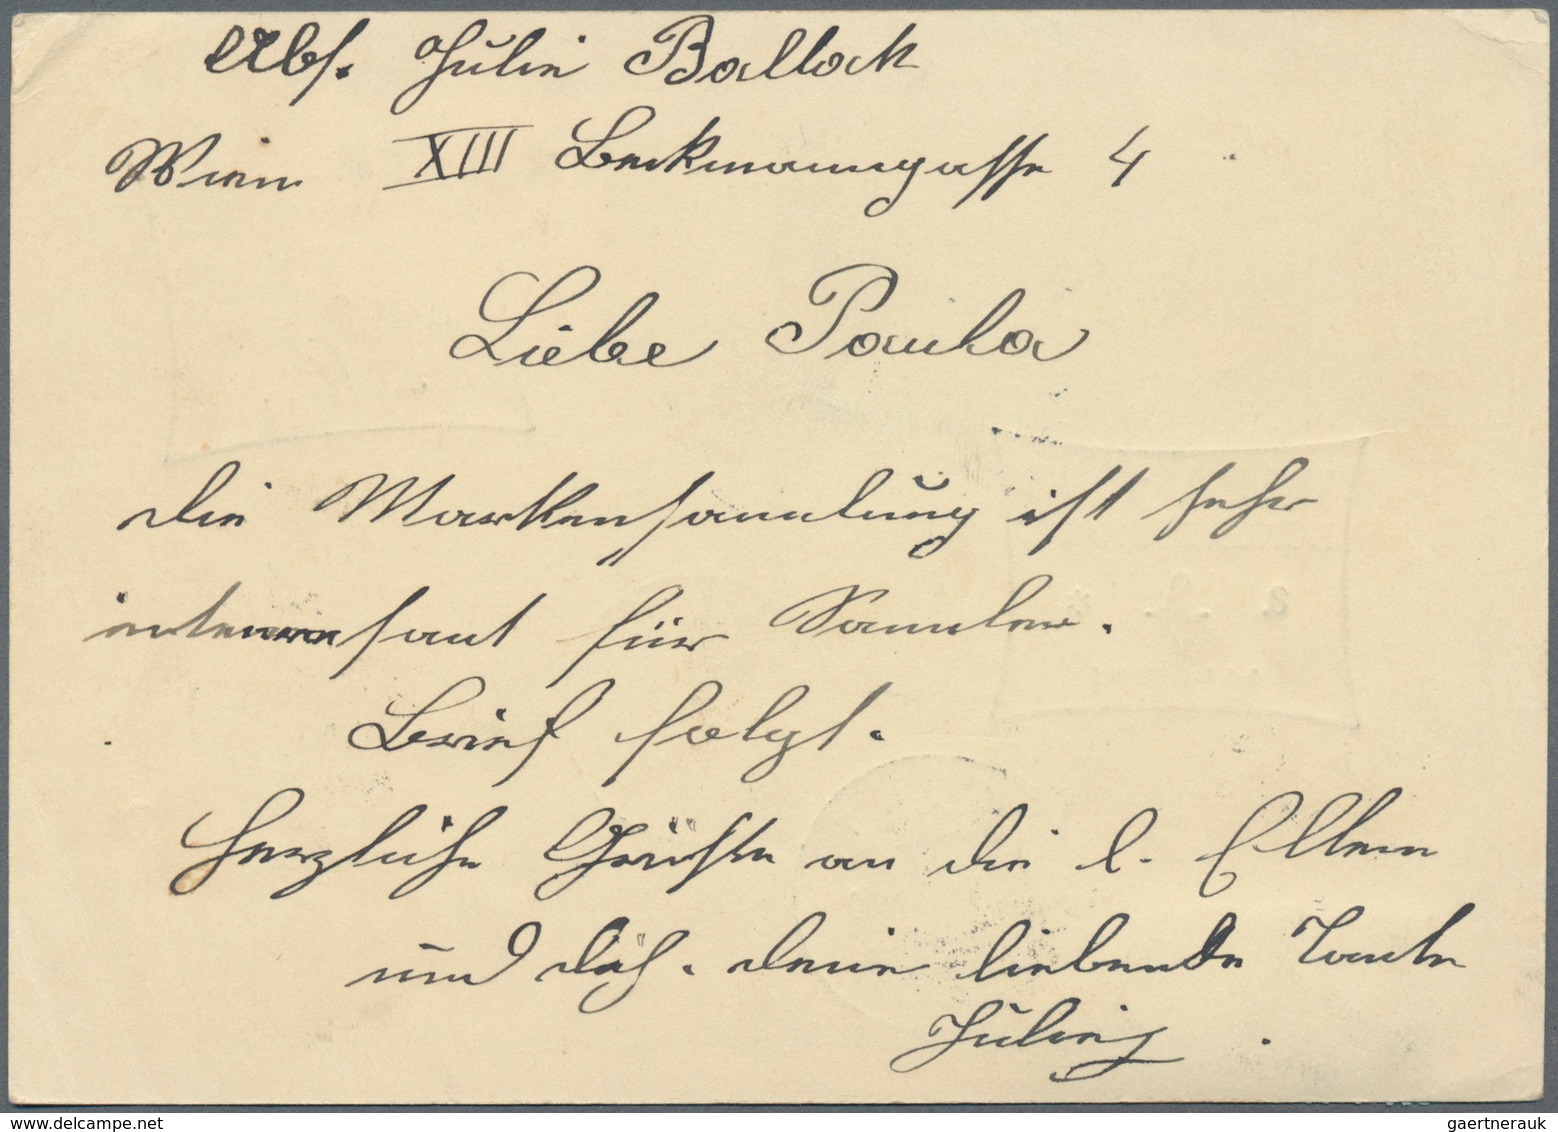 Abs. Julie Ballack
Wien XIII Beckmanngasse 4
Liebe Paula
die Markensammlung ist sehr
interessant für Sammler.
Brief folgt.
Herzliche Grüsse an die l. Eltern
und dich. deine liebende Tante
Julie
gaertnerauk@hotmail.com